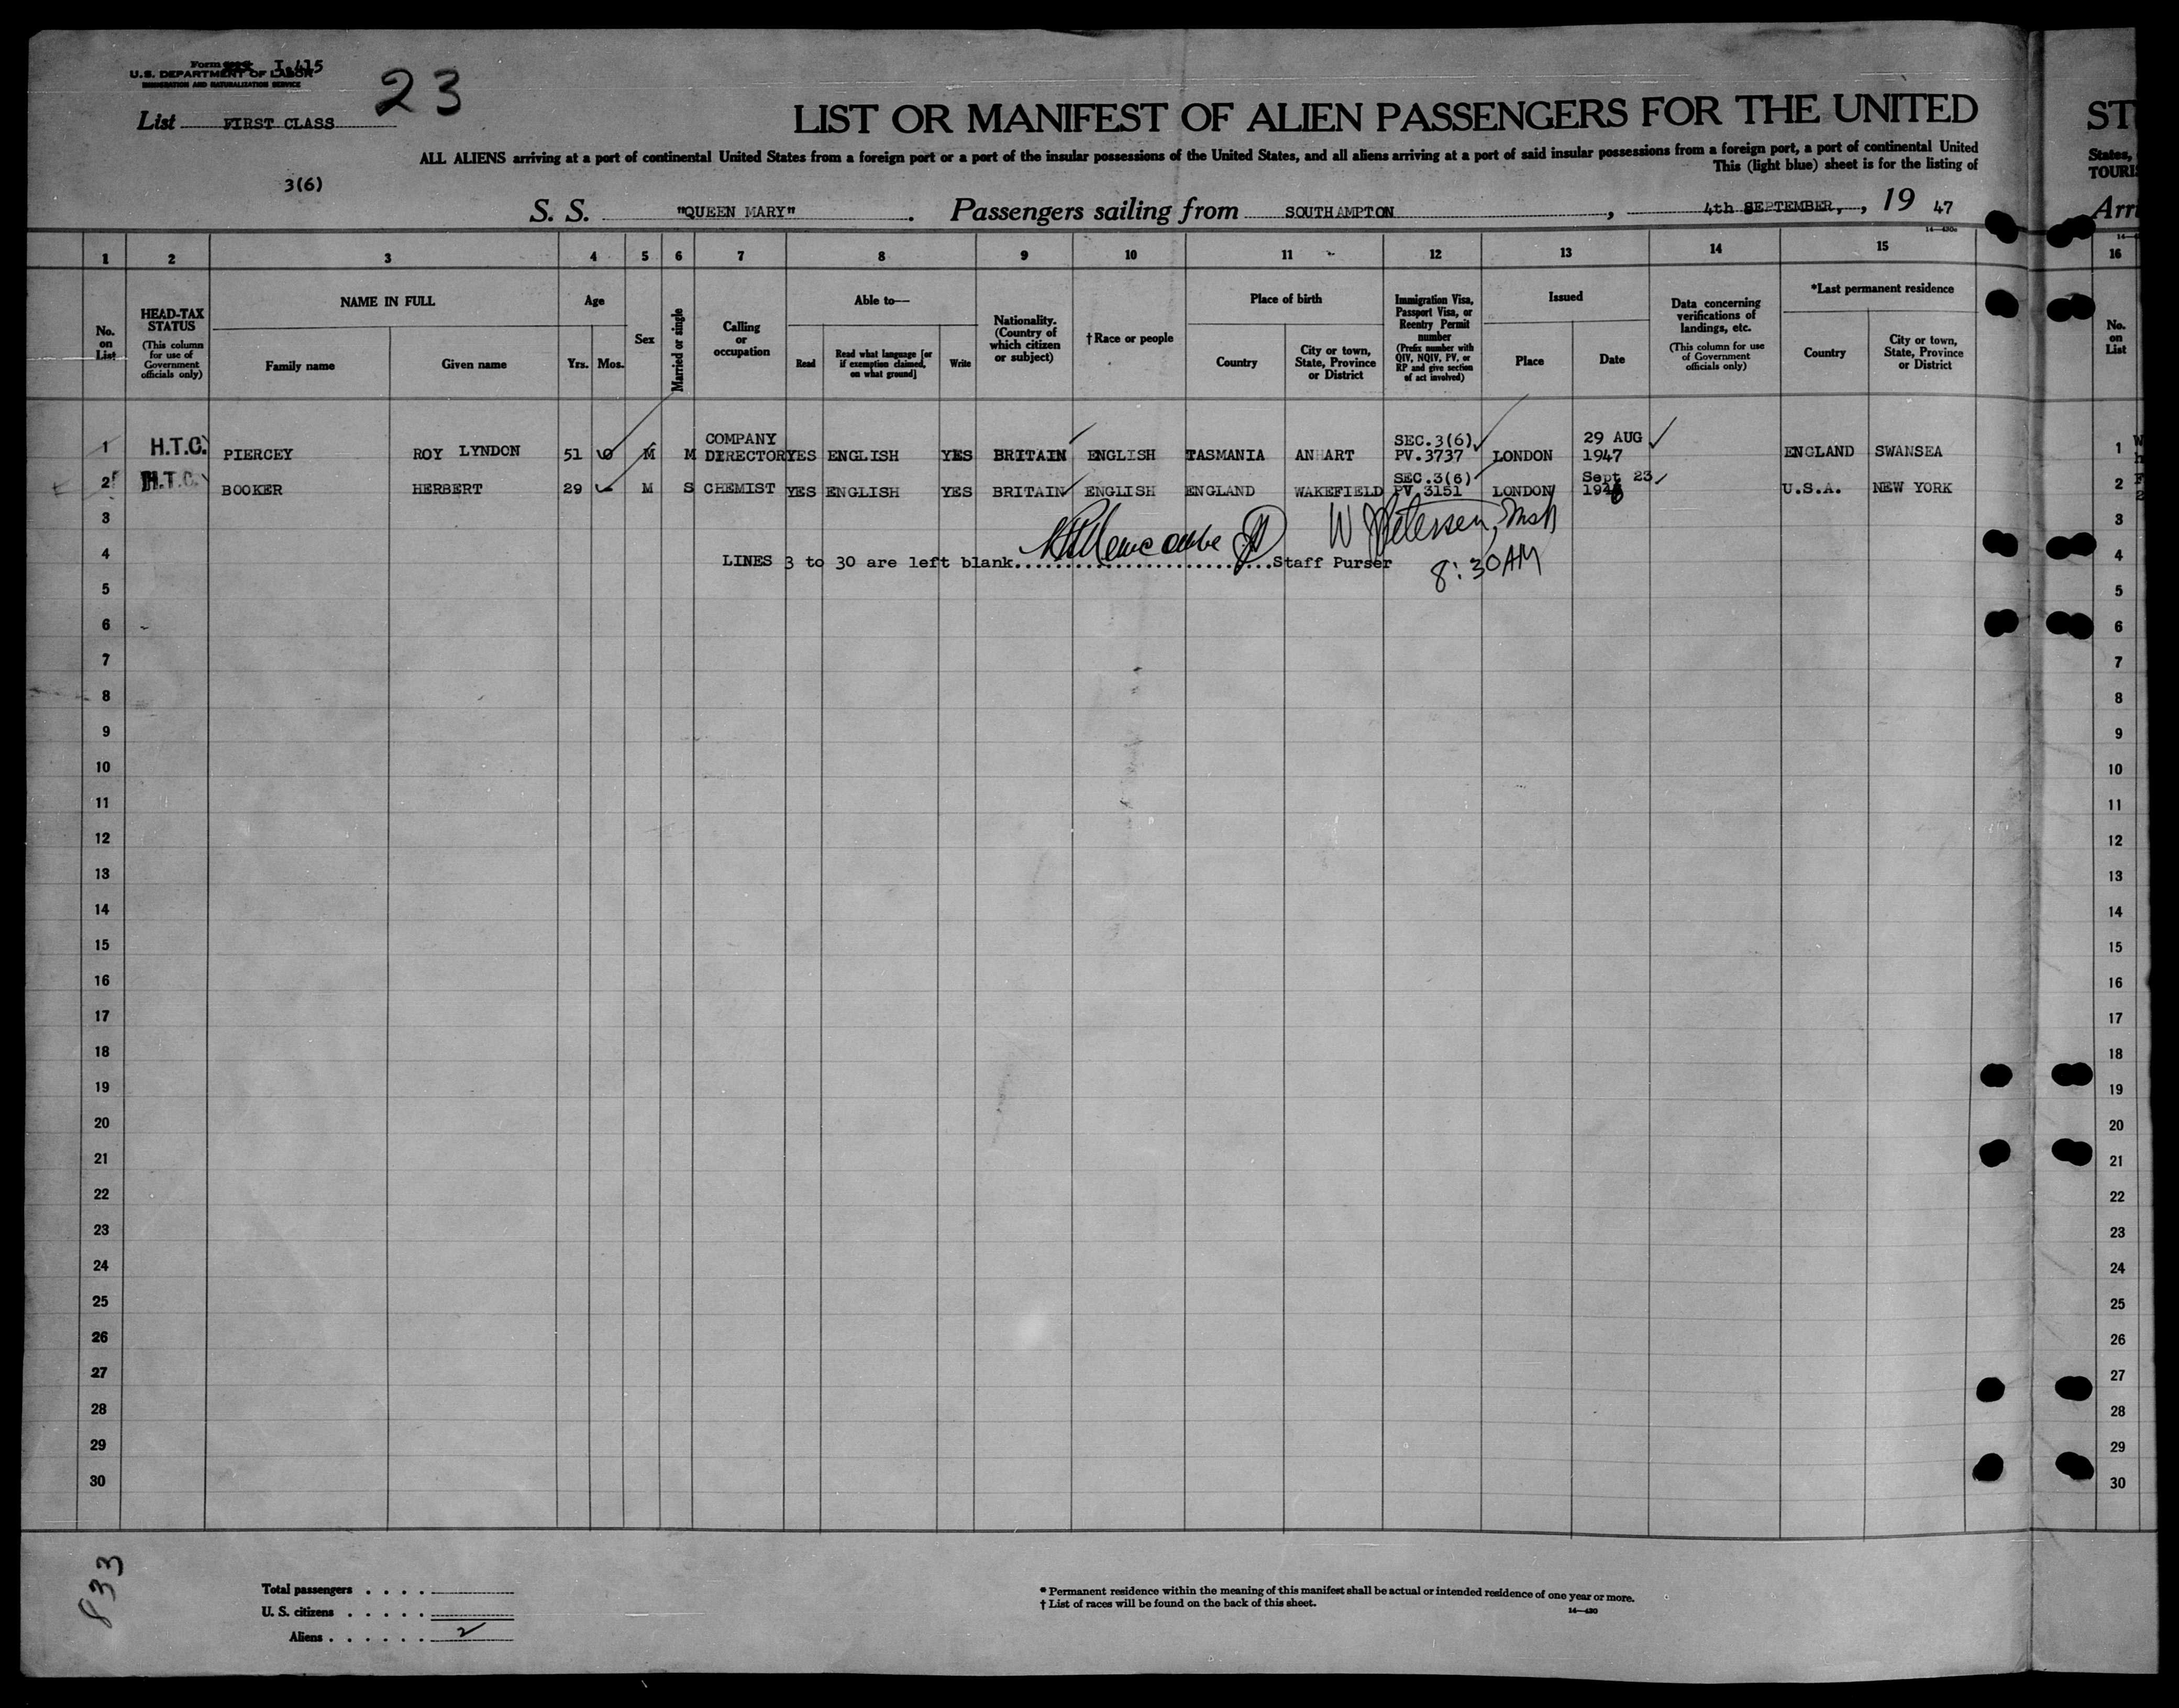 Form I-415
U.S. DEPARTMENT OF LABOR
IMMIGRATION AND NATURALIZATION SERVICE
23
List FIRST CLASS
3(6)
LIST OR MANIFEST OF ALIEN PASSENGERS FOR THE UNITED
ALL ALIENS arriving at a port of continental United States from a foreign port or a port of the insular possessions of the United States, and all aliens arriving at a port of said insular possessions from a foreign port, a port of continental United
This (light blue) sheet is for the listing of
S. S. "QUEEN MARY". Passengers sailing from SOUTHAMPTON, 4th SEPTEMBER,, 19 47
ST
States,
TOURIS
Arri
1 2 3 4 5 6 7 8 9 10 11 12 13 14 15 16
No. on List
HEAD-TAX STATUS (This column for use of Government officials only)
NAME IN FULL
Family name Given name
Age
Yrs. Mos.
Sex
Married or single
Calling or occupation
Able to—
Read Read what language [or if exemption claimed, on what ground] Write
Nationality. (Country of which citizen or subject)
†Race or people
Place of birth
Country City or town, State, Province or District
Immigration Visa, Passport Visa, or Reentry Permit number (Prefix number with QIV, NQIV, PV, or RP and give section of act involved)
Issued
Place Date
Data concerning verifications of landings, etc. (This column for use of Government officials only)
*Last permanent residence
Country City or town, State, Province or District
No. on List
1 H.T.C. PIERCEY ROY LYNDON 51 M M COMPANY DIRECTOR YES ENGLISH YES BRITAIN ENGLISH TASMANIA ANHART SEC.3(6) PV.3737 LONDON 29 AUG 1947 ENGLAND SWANSEA 1
2 H.T.C. BOOKER HERBERT 29 M S CHEMIST YES ENGLISH YES BRITAIN ENGLISH ENGLAND WAKEFIELD SEC.3(6) PV.3151 LONDON Sept 23 1946 U.S.A. NEW YORK 2
3 3
4 LINES 3 to 30 are left blank..........................Staff Purser 8:30AM 4
5 5
6 6
7 7
8 8
9 9
10 10
11 11
12 12
13 13
14 14
15 15
16 16
17 17
18 18
19 19
20 20
21 21
22 22
23 23
24 24
25 25
26 26
27 27
28 28
29 29
30 30
833
Total passengers . . . .
U. S. citizens . . . . .
Aliens . . . . . . 2
* Permanent residence within the meaning of this manifest shall be actual or intended residence of one year or more.
† List of races will be found on the back of this sheet.
14—430